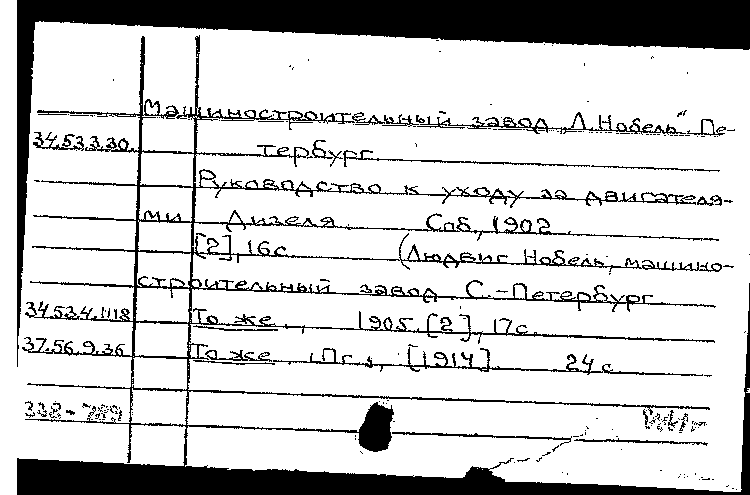 Машиностроительный завод „Л.Нобель“. Пе-
34.53.3.30. тербург.
Руководство к уходу за двигателя-
ми Дизеля. Спб., 1902.
[2], 16с. (Людвиг Нобель, машино-
строительный завод. С.-Петербург.
34.53.4.1118 То же., 1905. [2], 17с.
37.56.9.36 То же. , Пг., [1914]. 24с.
338-789